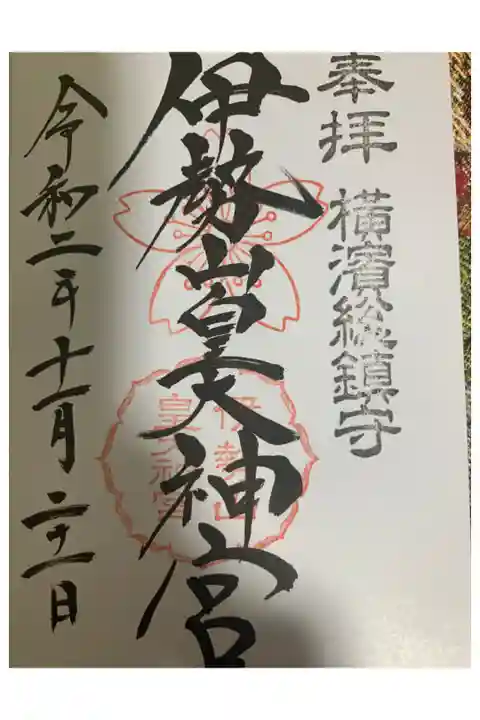 奉拝 横濱総鎮守
伊勢山皇大神宮
伊勢山
皇大神宮
令和二年十一月二十一日